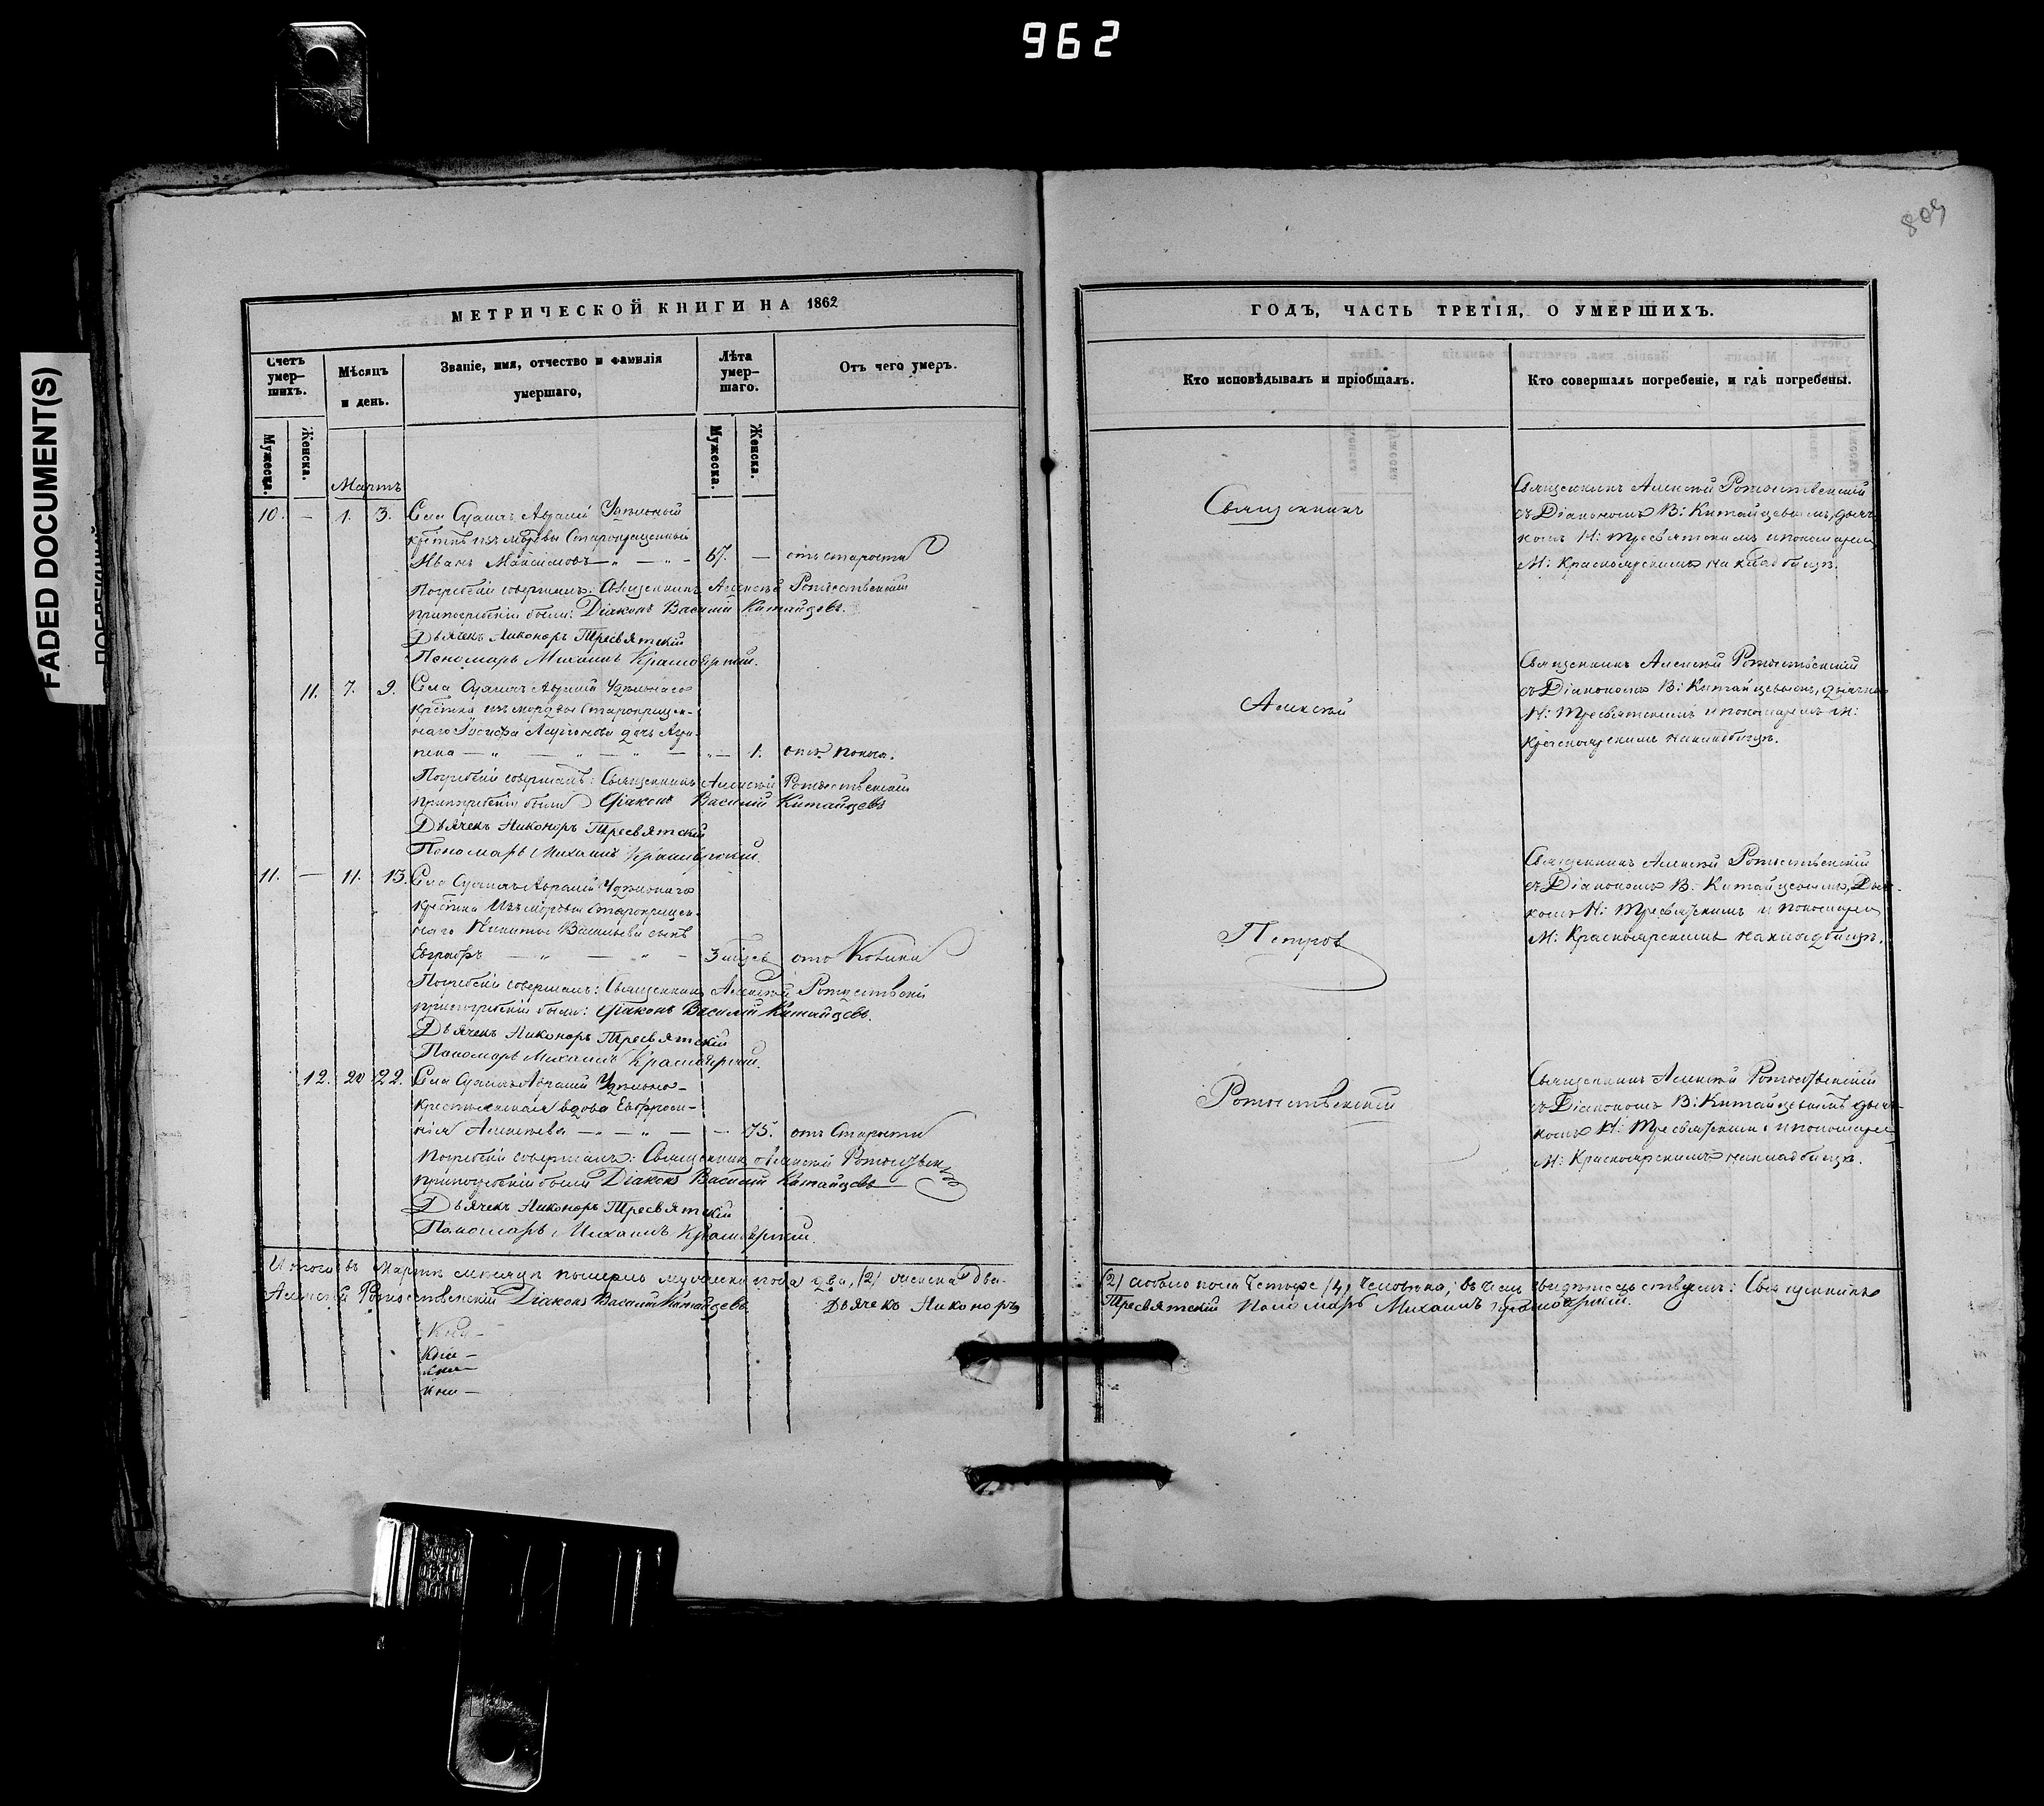 962
FADED DOCUMENT(S)
809
МЕТРИЧЕСКОЙ КНИГИ НА 1862
Счетъ умер-шихъ.
Мѣсяцъ и день.
Званіе, имя, отчество и фамилія умершаго,
Лѣта умер-шаго.
Отъ чего умеръ.
Мужеска. Женска.
Мужеска. Женска.
Мартъ
10. — 1. 3. Села Удѣльной
Старокрещенный
Иванъ Максимовъ — 67. — отъ старости
Погребеніе совершалъ: Священникъ Алексѣй Рождественскій
при погребеніи были: Діаконъ Василій Китайцевъ.
Дьячекъ Никоноръ Тресвятскій
Пономарь Михаилъ Красноярскій.
11. 7. 9. Села Удѣльнаго
изъ мордвы старокрещен-
наго Іосифа дочь Агри-
пена — 1. отъ поноса.
Погребеніе совершалъ: Священникъ Алексѣй Рождественскій
при погребеніи были Діаконъ Василій Китайцевъ
Дьячекъ Никоноръ Тресвятскій
Пономарь Михаилъ Красноярскій.
11. — 11. 13. Села Удѣльнаго
изъ мордвы старокрещен-
наго Никиты Васильева сынъ
Евграфъ — 3 отъ
Погребеніе совершалъ: Священникъ Алексѣй
при погребеніи были: Діаконъ Василій Китайцевъ.
Дьячекъ Никоноръ Тресвятскій
Пономарь Михаилъ Красноярскій.
12. 20 22. Села Удѣльно-
крестьянская вдова Евфроси-
нія Алексѣева — 75. отъ Старости
Погребеніе совершалъ: Священникъ Алексѣй
при погребеніи были Діаконъ Василій Китайцевъ
Дьячекъ Никоноръ Тресвятскій
Пономарь Михаилъ Красноярскій.
Итого въ Мартѣ мѣсяцѣ померло мужеска пола два, (2) женска два
Алексѣй Рождественскій Діаконъ Василій Китайцевъ Дьячекъ Никоноръ
ГОДЪ, ЧАСТЬ ТРЕТІЯ, О УМЕРШИХЪ.
Кто исповѣдывалъ и пріобщалъ.
Кто совершалъ погребеніе, и гдѣ погребены.
Священникъ
Алексѣй
Петровъ
Рождественскій
Священникъ Алексѣй Рождественскій
съ Діакономъ В: Китайцевымъ, дьяч-
комъ Н: Тресвятскимъ и пономаремъ
М: Красноярскимъ на кладбищѣ.
Священникъ Алексѣй Рождественскій
съ Діакономъ В: Китайцевымъ, дьячко
Н: Тресвятскимъ и пономаремъ М:
Красноярскимъ на кладбищѣ.
Священникъ Алексѣй Рождественскій
съ Діакономъ В. Китайцевымъ, Дьяч-
комъ Н: Тресвятскимъ и пономаремъ
М: Красноярскимъ на кладбищѣ.
Священникъ Алексѣй Рождественскій
съ Діакономъ В: Китайцевымъ дьяч-
комъ Н: Тресвятскимъ и пономаремъ
М: Красноярскимъ на кладбищѣ.
(2) пола Четыре (4) человѣка; въ чемъ свидѣтельствуемъ: Священникъ
Тресвятскій Пономарь Михаилъ Красноярскій.